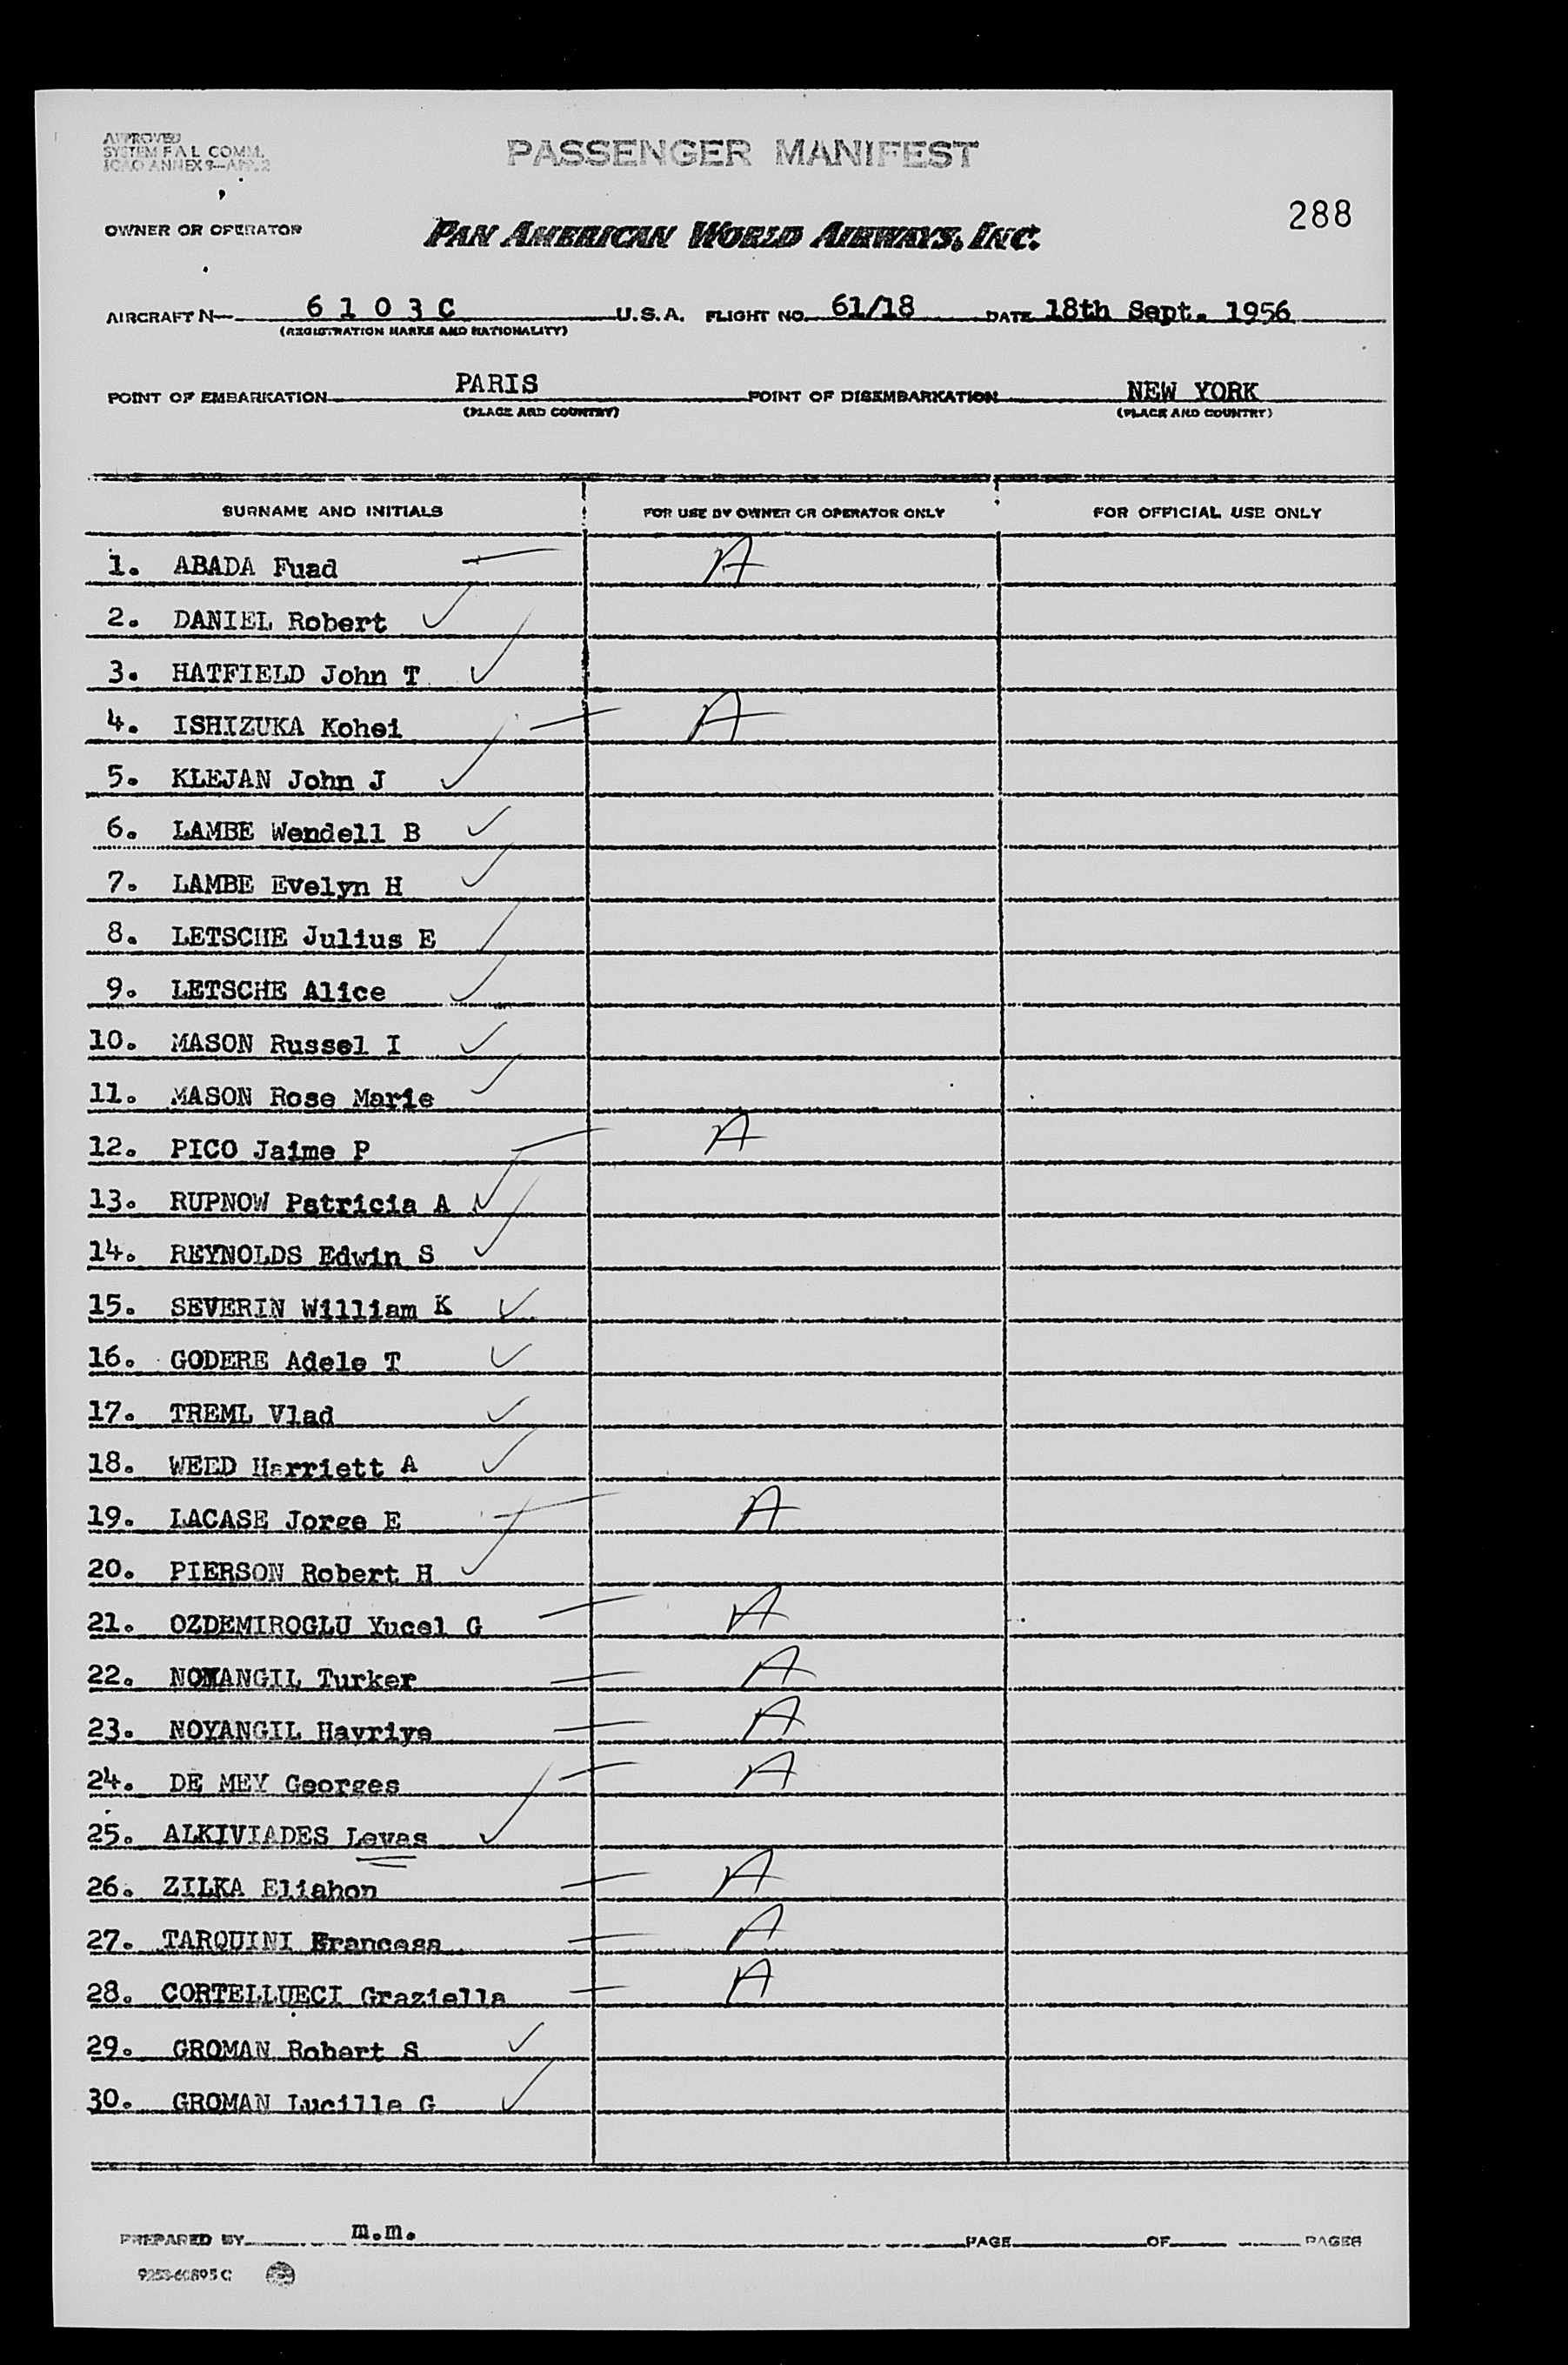 APPROVED
SYSTEM F.A.L. COMM.
ICAO ANNEX 9—APP. 2
PASSENGER MANIFEST
288
OWNER OR OPERATOR PAN AMERICAN WORLD AIRWAYS, INC.
AIRCRAFT N— 6 1 0 3 C U.S.A. FLIGHT NO. 61/18 DATE 18th Sept. 1956
(REGISTRATION MARKS AND NATIONALITY)
POINT OF EMBARKATION PARIS POINT OF DISEMBARKATION NEW YORK
(PLACE AND COUNTRY) (PLACE AND COUNTRY)
SURNAME AND INITIALS FOR USE BY OWNER OR OPERATOR ONLY FOR OFFICIAL USE ONLY
1. ABADA Fuad — A
2. DANIEL Robert ✓
3. HATFIELD John T ✓
4. ISHIZUKA Kohei — A
5. KLEJAN John J ✓
6. LAMBE Wendell B ✓
7. LAMBE Evelyn H ✓
8. LETSCHE Julius E ✓
9. LETSCHE Alice ✓
10. MASON Russel I ✓
11. MASON Rose Marie ✓
12. PICO Jaime P — A
13. RUPNOW Patricia A ✓
14. REYNOLDS Edwin S ✓
15. SEVERIN William K ✓
16. GODERE Adele T ✓
17. TREML Vlad ✓
18. WEED Harriett A ✓
19. LACASE Jorge E — A
20. PIERSON Robert H ✓
21. OZDEMIROGLU Yucel G — A
22. NOYANGIL Turker — A
23. NOYANGIL Hayriye — A
24. DE MEY Georges — A
25. ALKIVIADES Levas ✓
26. ZILKA Eliahon — A
27. TARQUINI Francesa — A
28. CORTELLUECI Graziella — A
29. GROMAN Robert S ✓
30. GROMAN Lucille G ✓
PREPARED BY m.m. PAGE OF PAGES